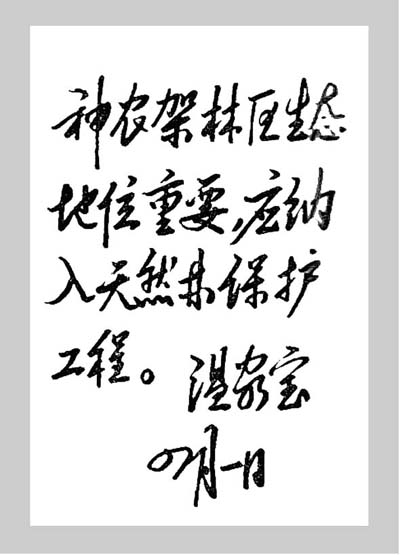 神农架林区生态
地位重要,应纳
入天然林保护
工程。 温家宝
07月一日